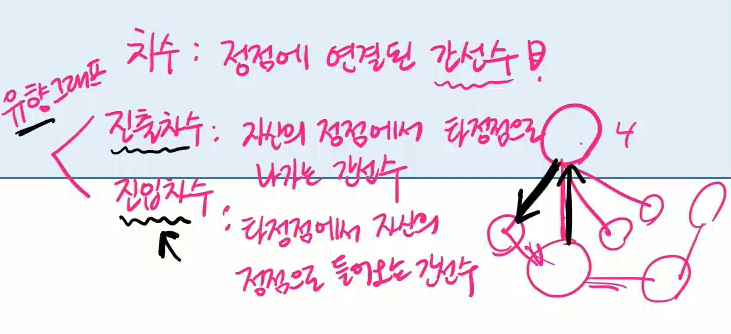 차수 : 정점에 연결된 간선수!
유향그래프
진출차수 : 자신의 정점에서 타정점으로
나가는 간선수
4
진입차수
: 타정점에서 자신의
정점으로 들어오는 간선수